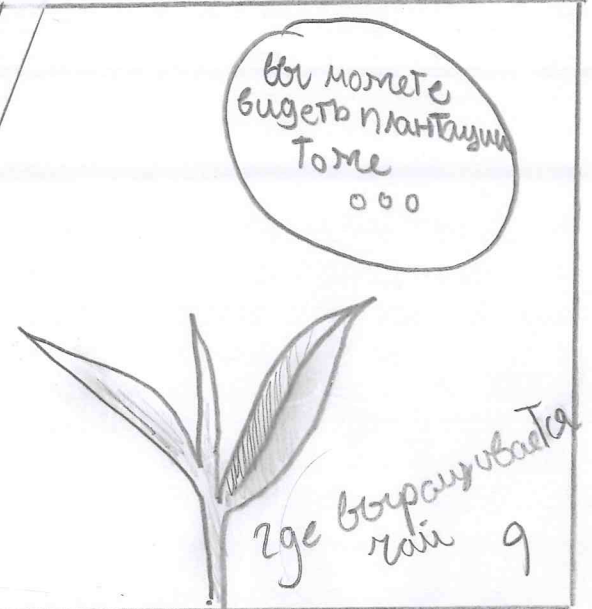 вы можете
видеть плантации
тоже
ооо
где выращивается
чай 9